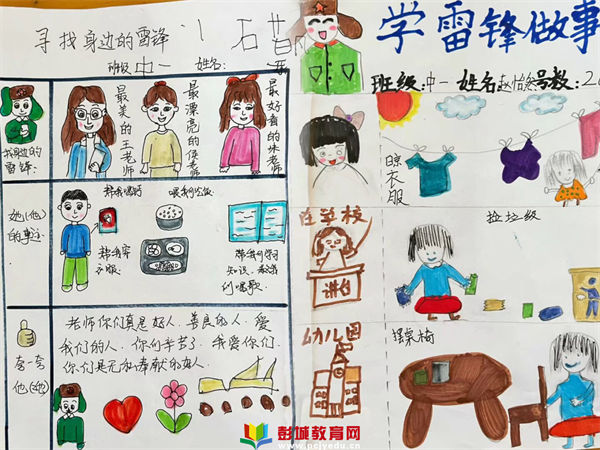 寻找身边的雷锋
班级:中一 姓名:
找身边的雷锋:
最美的王老师
最漂亮的侯老师
最好看的朱老师
她(他)的事迹:
帮我喝药
喂我们吃饭
帮我穿衣服
夸一夸他(她)
老师你们真是好人,善良的人,爱
我们的人,你们辛苦了,我爱你们
你们是无私奉献的好人
学雷锋做事
班级:中一 姓名 号数:2
晾衣服
在学校
讲台
捡垃圾
幼儿园
摆桌椅
彭城教育网
www.pcjyedu.cn